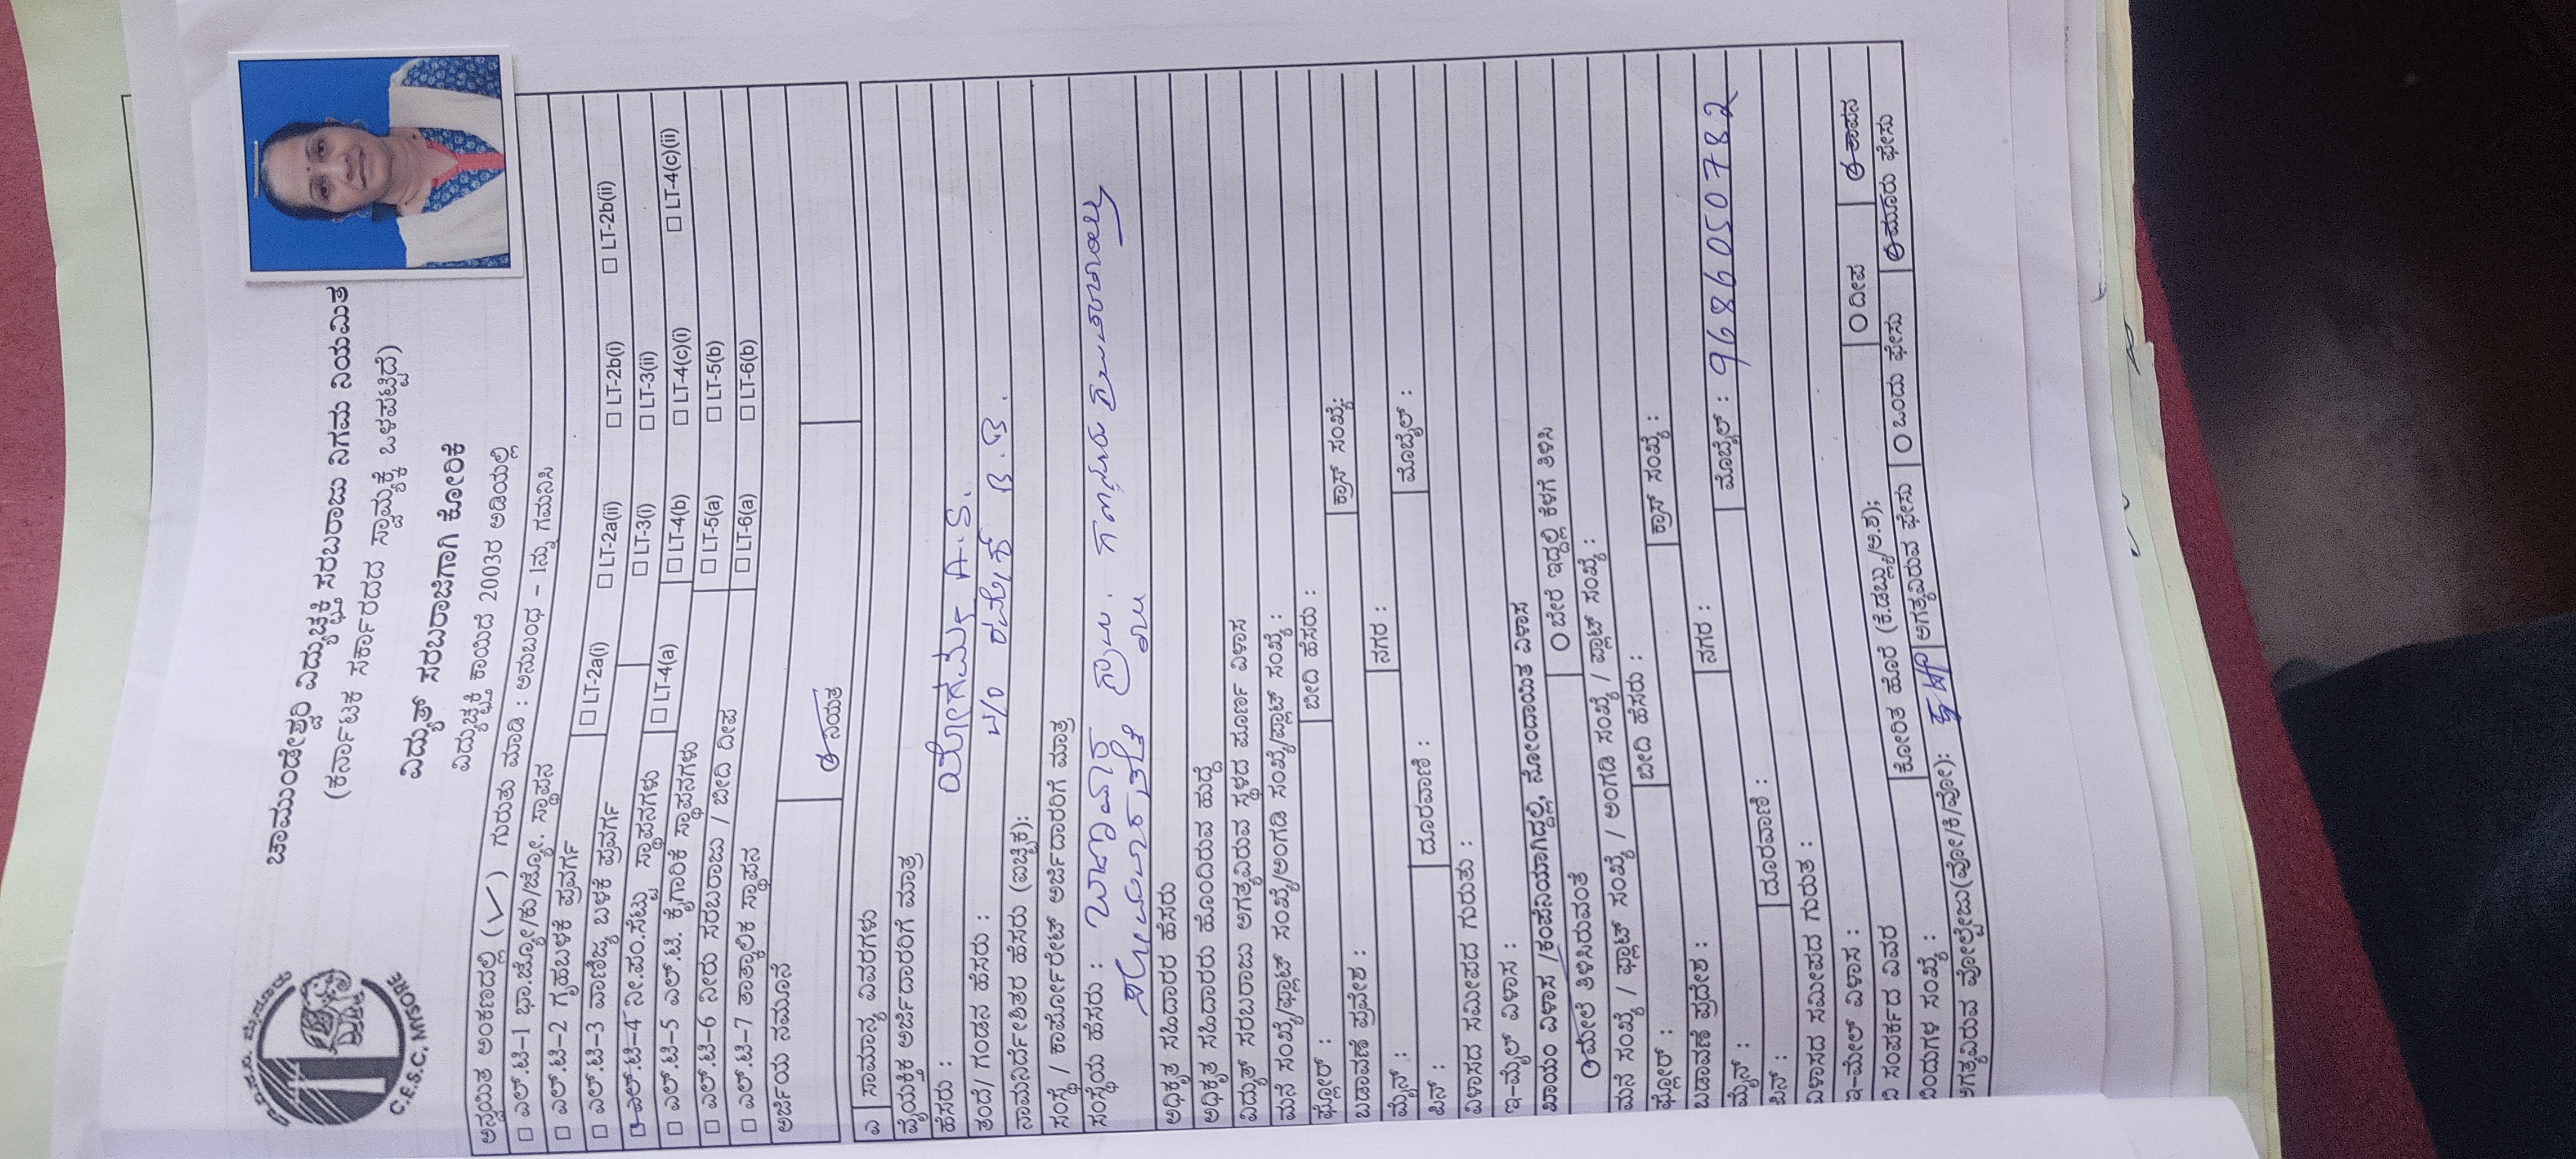 C.E.S.C. MYSORE
ಚಾಮುಂಡೇಶ್ವರಿ ವಿದ್ಯುಚ್ಛಕ್ತಿ ಸರಬರಾಜು ನಿಗಮ ನಿಯಮಿತ
(ಕರ್ನಾಟಕ ಸರ್ಕಾರದದ ಸ್ವಾಮ್ಯಕ್ಕೆ ಒಳಪಟ್ಟಿದೆ)
ವಿದ್ಯುತ್ ಸರಬರಾಜಿಗಾಗಿ ಕೋರಿಕೆ
ವಿದ್ಯುಚ್ಛಕ್ತಿ ಕಾಯಿದೆ 2003ರ ಅಡಿಯಲ್ಲಿ
ಅನ್ವಯಿತ ಅಂಕಣದಲ್ಲಿ (✓) ಗುರುತು ಮಾಡಿ : ಅನುಬಂಧ – 1ನ್ನು ಗಮನಿಸಿ
☐ ಎಲ್.ಟಿ–1 ಭಾ.ಜ್ಯೋ/ಕು/ಜ್ಯೋ. ಸ್ಥಾಪನ
☐ ಎಲ್.ಟಿ–2 ಗೃಹಬಳಕೆ ಪ್ರವರ್ಗ ☐ LT-2a(i) ☐ LT-2a(ii) ☐ LT-2b(i) ☐ LT-2b(ii)
☐ ಎಲ್.ಟಿ–3 ವಾಣಿಜ್ಯ ಬಳಕೆ ಪ್ರವರ್ಗ ☐ LT-3(i) ☐ LT-3(ii)
ಎಲ್.ಟಿ–4 ನೀ.ಪಂ.ಸೆಟ್ಟು ಸ್ಥಾಪನಗಳು ☐ LT-4(a) ☐ LT-4(b) ☐ LT-4(c)(i) ☐ LT-4(c)(ii)
☐ ಎಲ್.ಟಿ–5 ಎಲ್.ಟಿ. ಕೈಗಾರಿಕೆ ಸ್ಥಾಪನಗಳು ☐ LT-5(a) ☐ LT-5(b)
☐ ಎಲ್.ಟಿ–6 ನೀರು ಸರಬರಾಜು / ಬೀದಿ ದೀಪ ☐ LT-6(a) ☐ LT-6(b)
☐ ಎಲ್.ಟಿ–7 ತಾತ್ಕಾಲಿಕ ಸ್ಥಾಪನ
ಅರ್ಜಿಯ ನಮೂನೆ
ಎ ಸಾಮಾನ್ಯ ವಿವರಗಳು
ವೈಯಕ್ತಿಕ ಅರ್ಜಿದಾರರಿಗೆ ಮಾತ್ರ
ಹೆಸರು : A.S.
ತಂದೆ/ ಗಂಡನ ಹೆಸರು : ರಮೇಶ್ B.B.
ನಾಮನಿರ್ದೇಶಿತರ ಹೆಸರು (ಐಚ್ಛಿಕ):
ಸಂಸ್ಥೆ / ಕಾರ್ಪೋರೇಟ್ ಅರ್ಜಿದಾರರಿಗೆ ಮಾತ್ರ
ಸಂಸ್ಥೆಯ ಹೆಸರು :
ಅಧಿಕೃತ ಸಹಿದಾರರ ಹೆಸರು
ಅಧಿಕೃತ ಸಹಿದಾರರು ಹೊಂದಿರುವ ಹುದ್ದೆ
ವಿದ್ಯುತ್ ಸರಬರಾಜು ಅಗತ್ಯವಿರುವ ಸ್ಥಳದ ಪೂರ್ಣ ವಿಳಾಸ
ಮನೆ ಸಂಖ್ಯೆ/ಫ್ಲಾಟ್ ಸಂಖ್ಯೆ/ಅಂಗಡಿ ಸಂಖ್ಯೆ/ಪ್ಲಾಟ್ ಸಂಖ್ಯೆ :
ಫ್ಲೋರ್ : ಬೀದಿ ಹೆಸರು : ಕ್ರಾಸ್ ಸಂಖ್ಯೆ:
ಬಡಾವಣೆ ಪ್ರವೇಶ :
ಮೈನ್ : ನಗರ :
ಪಿನ್ : ದೂರವಾಣಿ : ಮೊಬೈಲ್ :
ವಿಳಾಸದ ಸಮೀಪದ ಗುರುತು :
ಇ–ಮೈಲ್ ವಿಳಾಸ :
ಖಾಯಂ ವಿಳಾಸ /ಕಂಪೆನಿಯಾಗಿದ್ದಲ್ಲಿ, ನೋಂದಾಯಿತ ವಿಳಾಸ
ಮೇಲೆ ತಿಳಿಸಿರುವಂತೆ O ಬೇರೆ ಇದ್ದಲ್ಲಿ ಕೆಳಗೆ ತಿಳಿಸಿ
ಮನೆ ಸಂಖ್ಯೆ / ಫ್ಲಾಟ್ ಸಂಖ್ಯೆ / ಅಂಗಡಿ ಸಂಖ್ಯೆ / ಪ್ಲಾಟ್ ಸಂಖ್ಯೆ :
ಫ್ಲೋರ್ : ಬೀದಿ ಹೆಸರು : ಕ್ರಾಸ್ ಸಂಖ್ಯೆ :
ಬಡಾವಣೆ ಪ್ರದೇಶ :
ಮೈನ್ : ನಗರ : ಮೊಬೈಲ್ : 9686050782
ಪಿನ್ : ದೂರವಾಣಿ :
ವಿಳಾಸದ ಸಮೀಪದ ಗುರುತ :
ಇ–ಮೇಲ್ ವಿಳಾಸ :
ಬಿ ಸಂಪರ್ಕದ ವಿವರ O ದೀಪ
ಬಿಂದುಗಳ ಸಂಖ್ಯೆ : ಕೋರಿತ ಹೊರೆ (ಕಿ.ಡಬ್ಲ್ಯು/ಅ.ಶ): ಅಗತ್ಯವಿರುವ ಫೇಸು O ಒಂದು ಫೇಸು ಮೂರು ಫೇಸು
ಅಗತ್ಯವಿರುವ ವೋಲ್ಟೇಜು(ವೋ/ಕಿ/ವೋ):